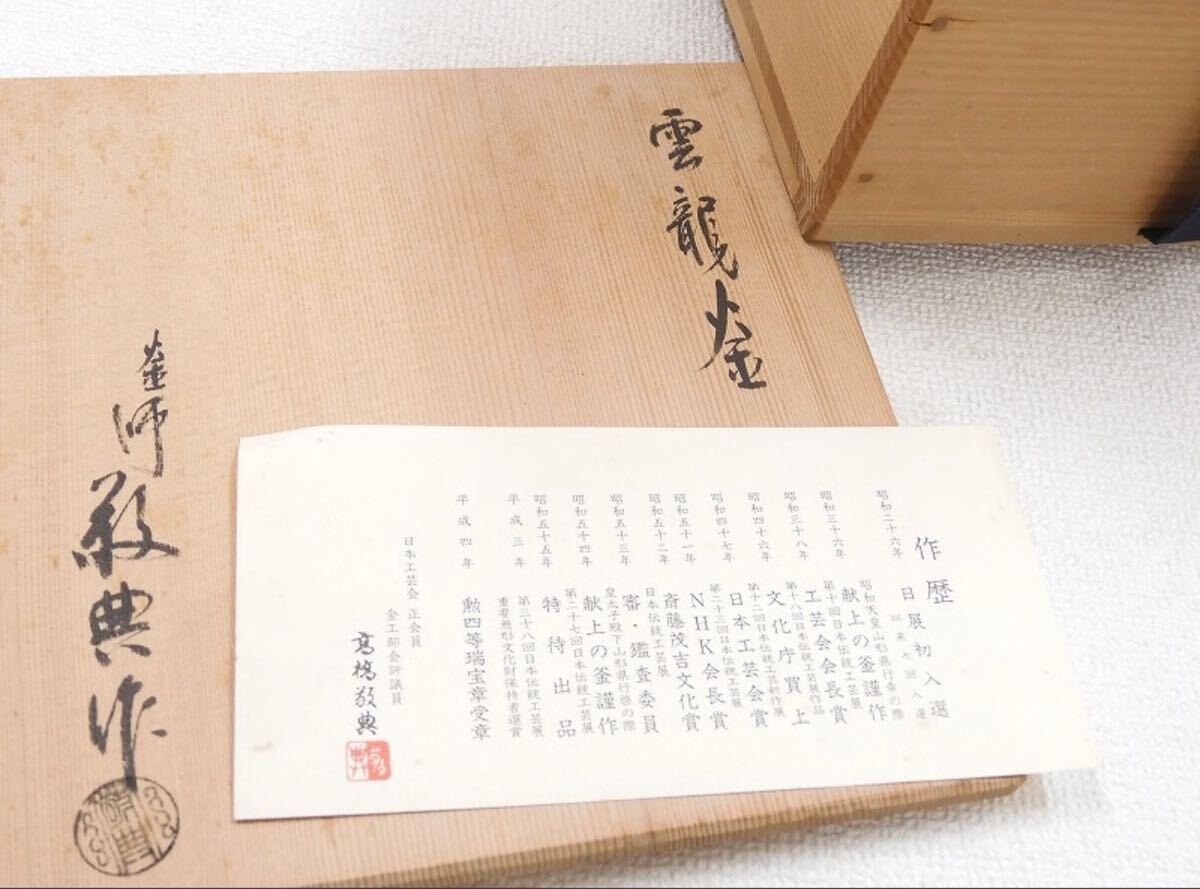 雲龍釜
釜師 敬典作
作歴
昭和二十六年 日展初入選 以来七回入選
昭和三十六年 昭和天皇山形県行幸の際 献上の釜謹作
昭和三十八年 第十回日本伝統工芸展 工芸会会長賞
昭和四十六年 第十八回日本伝統工芸展作品 文化庁買上
昭和四十七年 第十二回日本伝統工芸新作展 日本工芸会賞
昭和五十一年 第二十三回日本伝統工芸展 NHK会長賞
昭和五十二年 斎藤茂吉文化賞
昭和五十三年 日本伝統工芸展 審・鑑査委員
昭和五十四年 皇太子殿下山形県行啓の際 献上の釜謹作
昭和五十五年 第二十七回日本伝統工芸展 特待出品
平成三年 第三十八回日本伝統工芸展 重要無形文化財保持者選賞
平成四年 勲四等瑞宝章受章
日本工芸会 正会員
金工部会評議員
高橋敬典